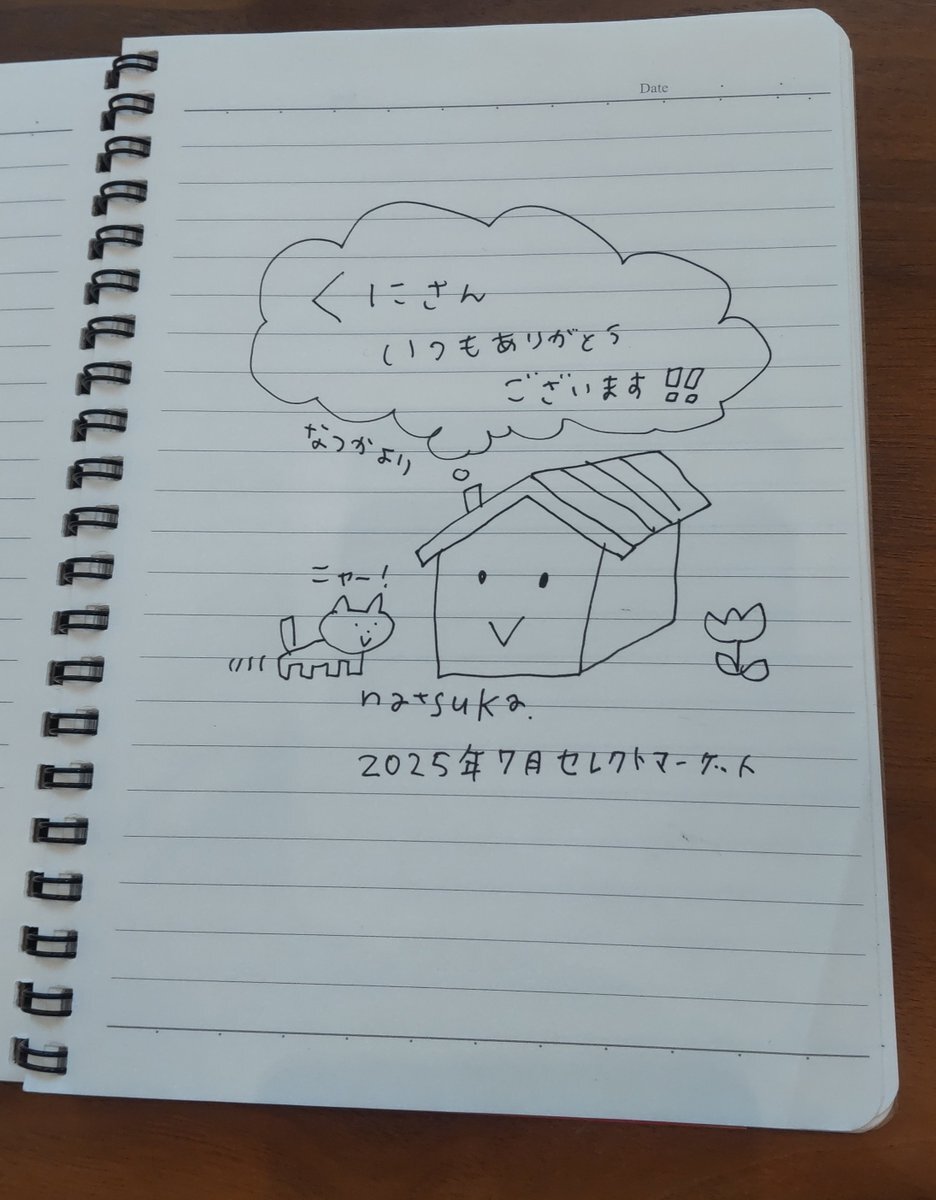 Date
くにさん
いつもありがとう
ございます!!
なつかより
ニャー!
natsuka.
2025年7月セレクトマーケット